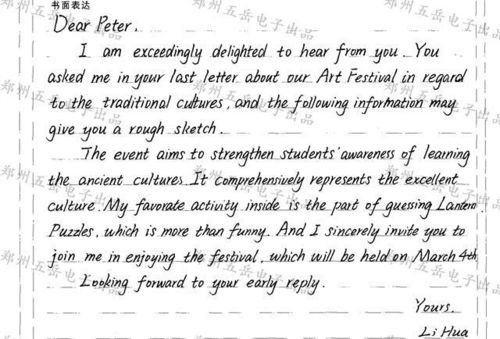 书面表达
Dear Peter,
I am exceedingly delighted to hear from you. You
asked me in your last letter about our Art Festival in regard
to the traditional cultures, and the following information may
give you a rough sketch.
The event aims to strengthen students' awareness of learning
the ancient cultures. It comprehensively represents the excellent
culture. My favorate activity inside is the part of guessing Lantern
Puzzles, which is more than funny. And I sincerely invite you to
join me in enjoying the festival, which will be held on March 4th.
Looking forward to your early reply.
Yours,
Li Hua
郑州五岳电子出品